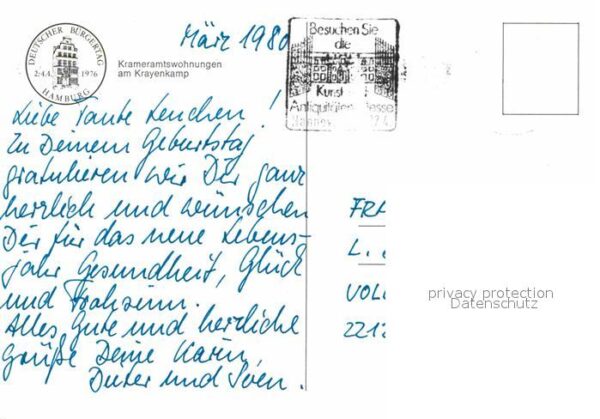 März 1980
DEUTSCHER BÜRGERTAG
2.-4.4. 1976
HAMBURG
Krameramtswohnungen
am Krayenkamp
Besuchen Sie
die
Kunst
Antiquitäten Messe
Liebe Tante Lenchen!
Zu Deinem Geburtstag
gratulieren wir Dir ganz
herzlich und wünschen
Dir für das neue Lebens-
jahr Gesundheit, Glück
und Frohsinn.
Alles Gute und herzliche
Grüße Deine Karin,
Dieter und Sven.
FRA
L.
VOL
221
privacy protection
Datenschutz